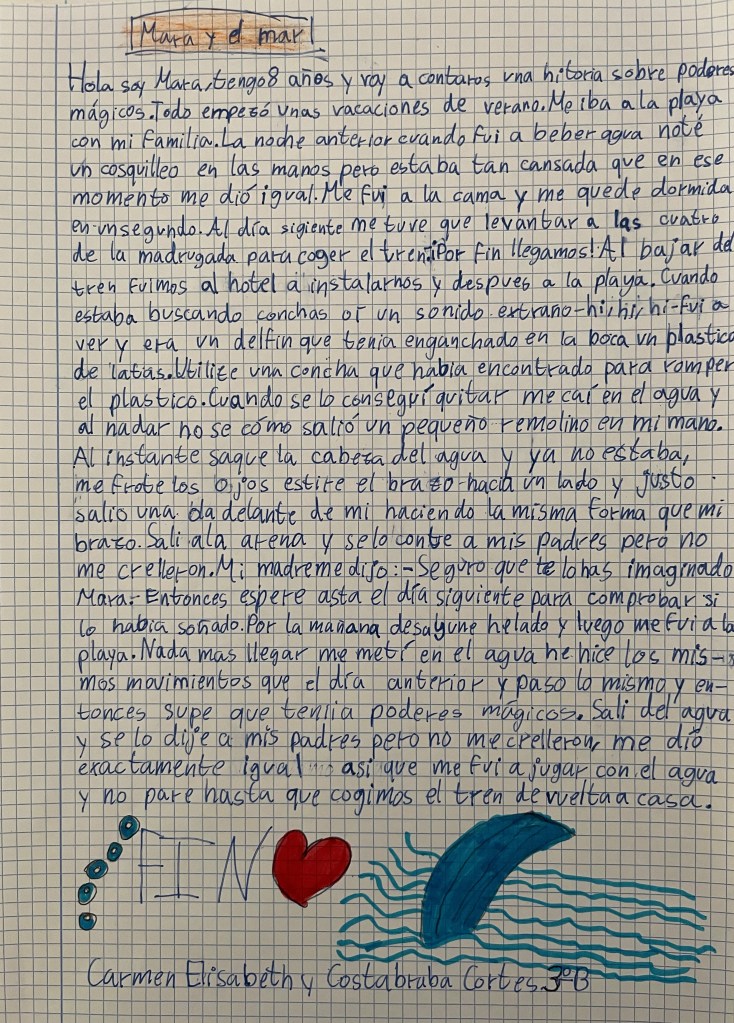 Mara y el mar
Hola soy Mara, tengo 8 años y voy a contaros una hitoria sobre poderes
mágicos. Todo empezó unas vacaciones de verano. Me iba a la playa
con mi familia. La noche anterior cuando fui a beber agua noté
un cosquilleo en las manos pero estaba tan cansada que en ese
momento me dió igual. Me fui a la cama y me quede dormida
en un segundo. Al día sigiente me tuve que levantar a las cuatro
de la madrugada para coger el tren. ¡Por fin llegamos! Al bajar del
tren fuimos al hotel a instalarnos y despues a la playa. Cuando
estaba buscando conchas oí un sonido extraño-hi, hi, hi-fui a
ver y era un delfin que tenia enganchado en la boca un plastico
de latas. Utilize una concha que habia encontrado para romper
el plastico. Cuando se lo conseguí quitar me caí en el agua y
al nadar no se cómo salió un pequeño remolino en mi mano.
Al instante saque la cabeza del agua y ya no estaba,
me frote los ojos estire el brazo hacia un lado y justo
salio una ola delante de mi haciendo la misma forma que mi
brazo. Sali ala arena y selo conte a mis padres pero no
me crelleron. Mi madre me dijo:-Seguro que te lo has imaginado
Mara.- Entonces espere asta el día siguiente para comprobar si
lo habia soñado. Por la mañana desayune helado y luego me fui a la
playa. Nada mas llegar me metí en el agua he hice los mis-
mos movimientos que el día anterior y paso lo mismo y en-
tonces supe que tenia poderes mágicos. Sali del agua
y se lo dije a mis padres pero no me crelleron, me dió
exactamente igual asi que me fui a jugar con el agua
y no pare hasta que cogimos el tren de vuelta a casa.
FIN
Carmen Elisabeth y Costabraba Cortes 3ºB